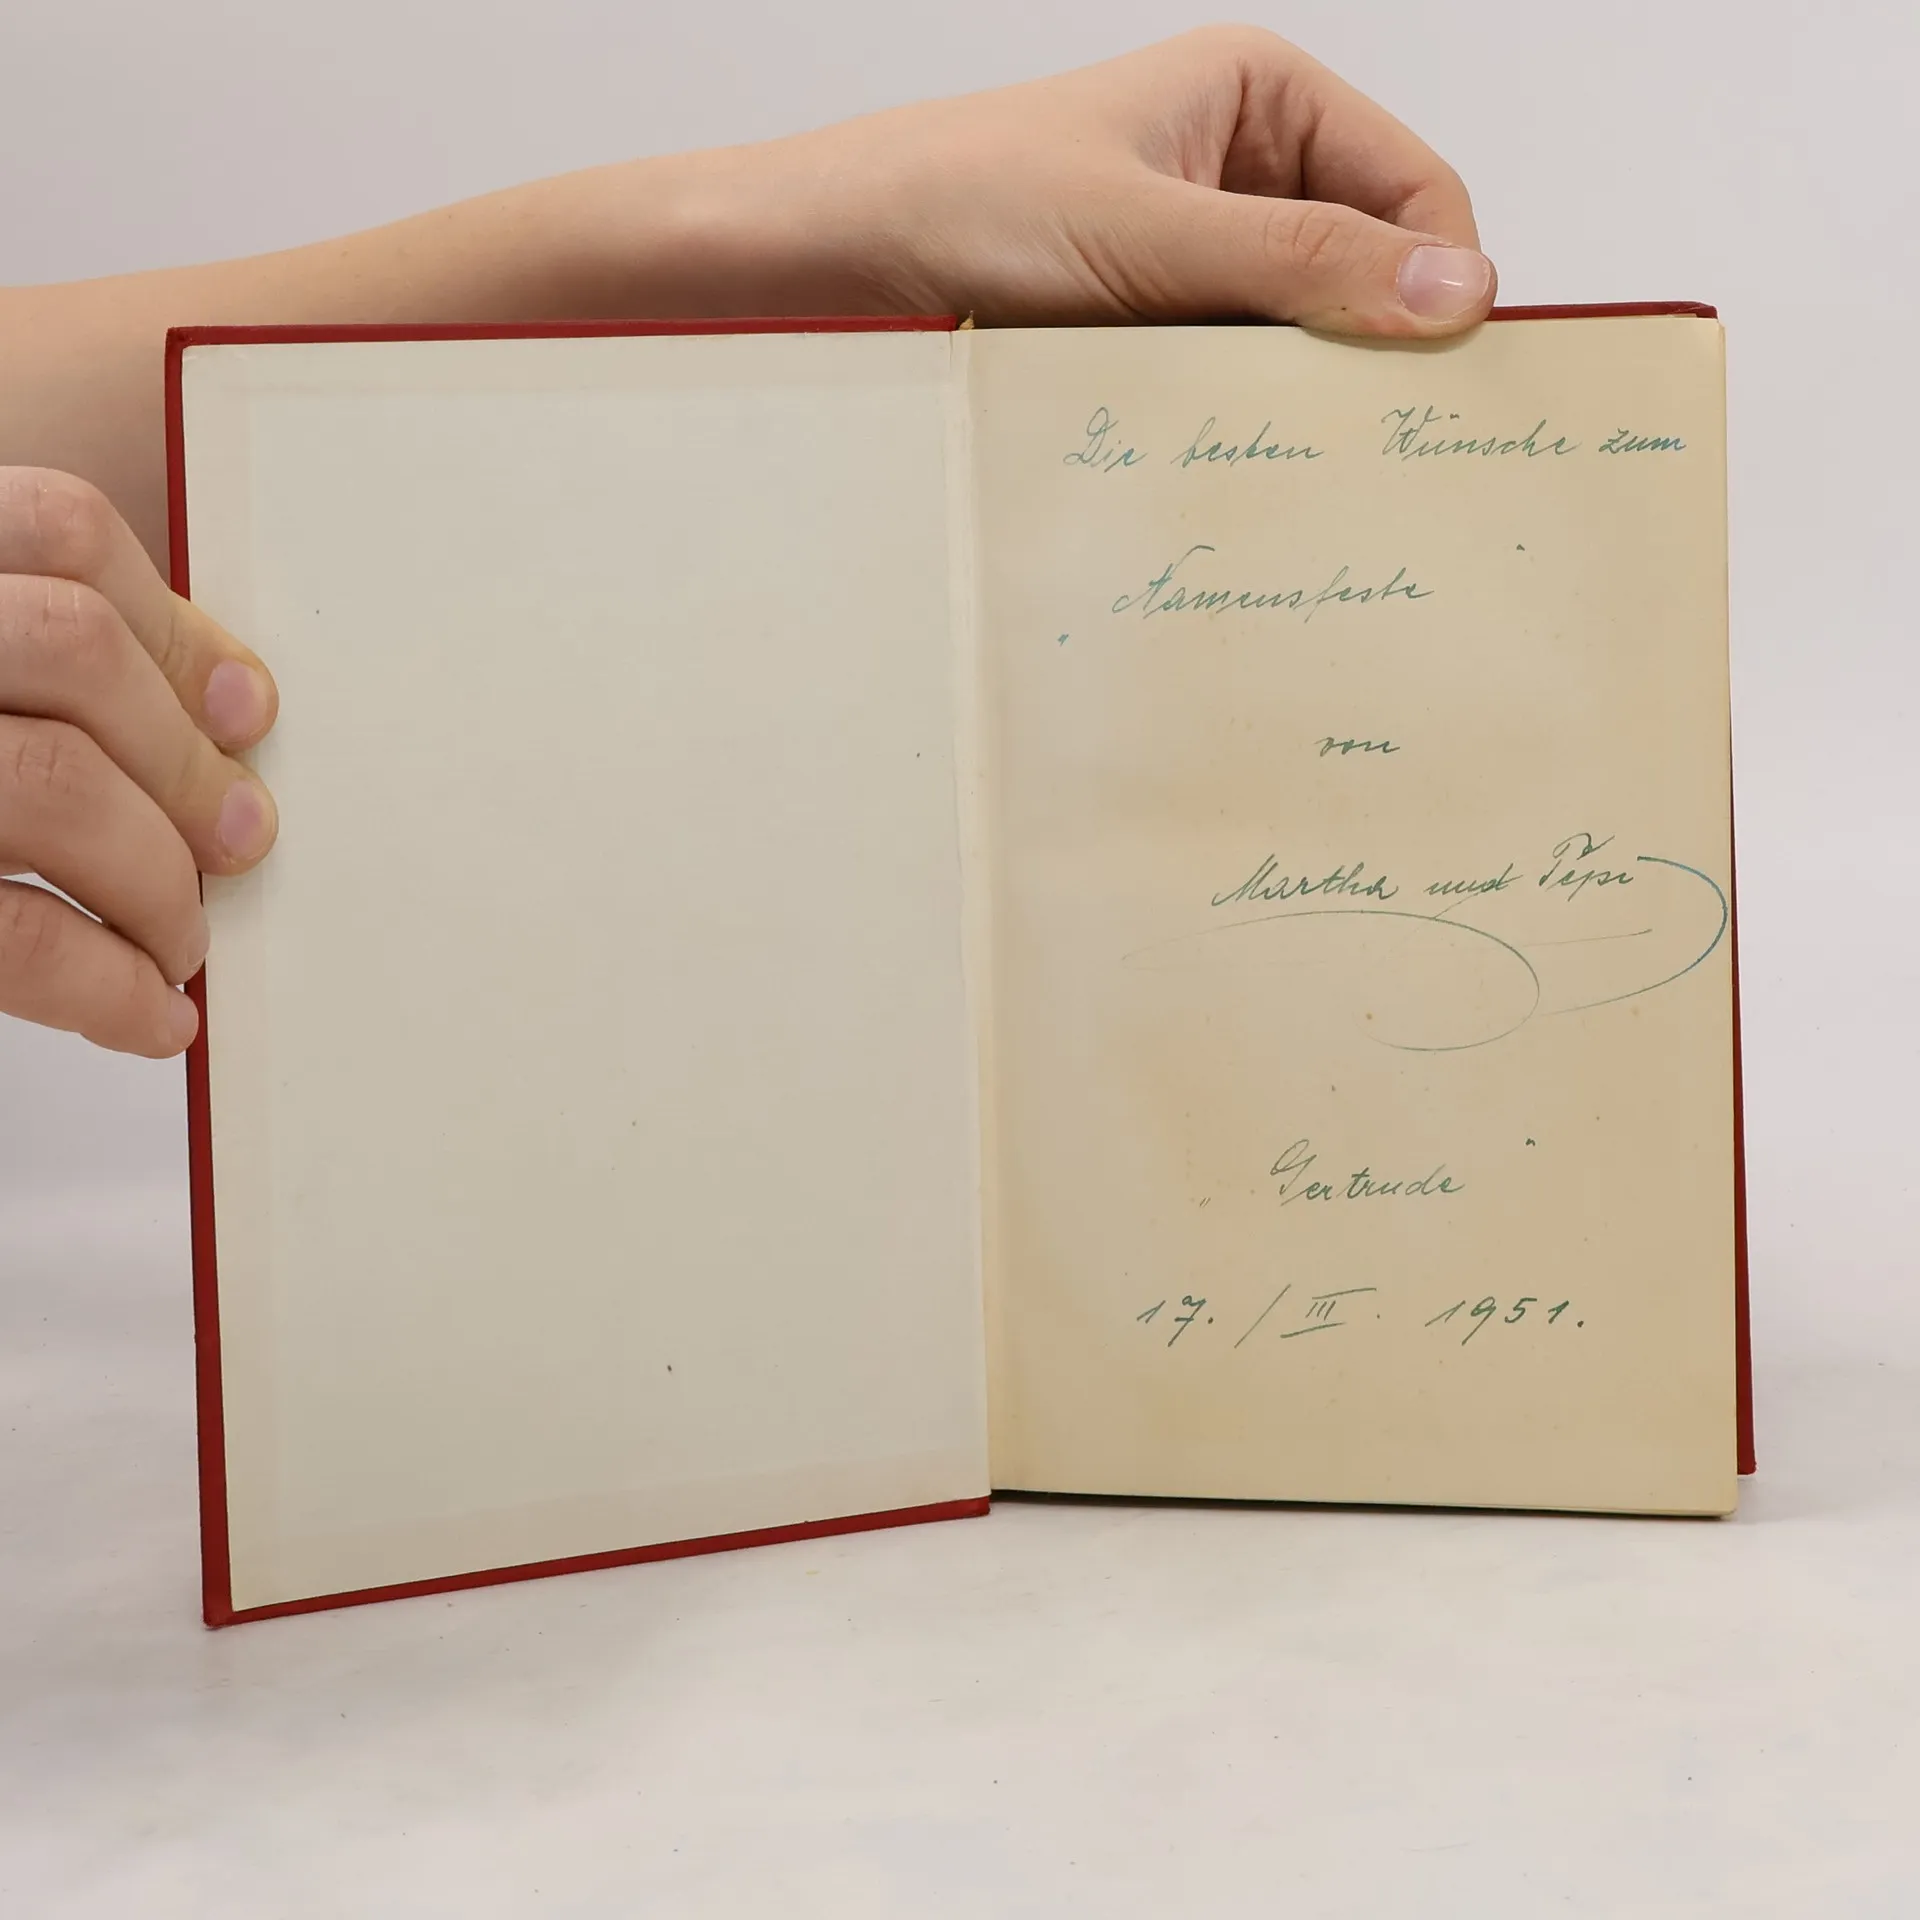 Die besten Wünsche zum
„Namensfeste“
von
Martha und Pepi
„Gertrude“
17. / III. 1951.